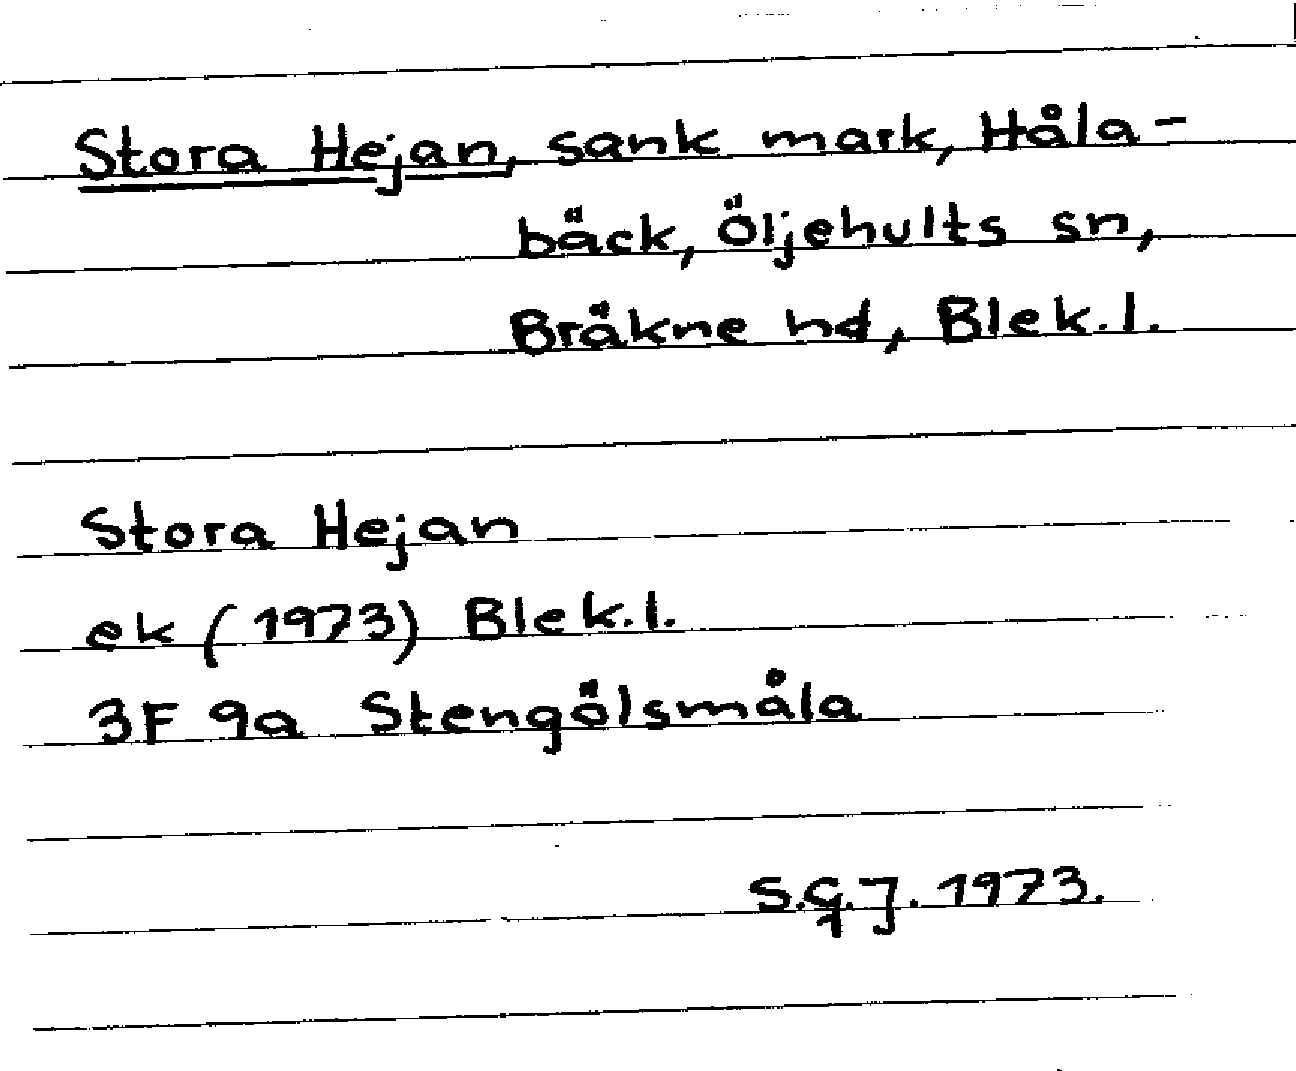 Stora Hejan, sank mark, Håla-
bäck, Öljehults sn,
Bräkne hd, Blek.l.
Stora Hejan
ek (1973) Blek.l.
3F 9a Stengölsmåla
S.G.J. 1973.